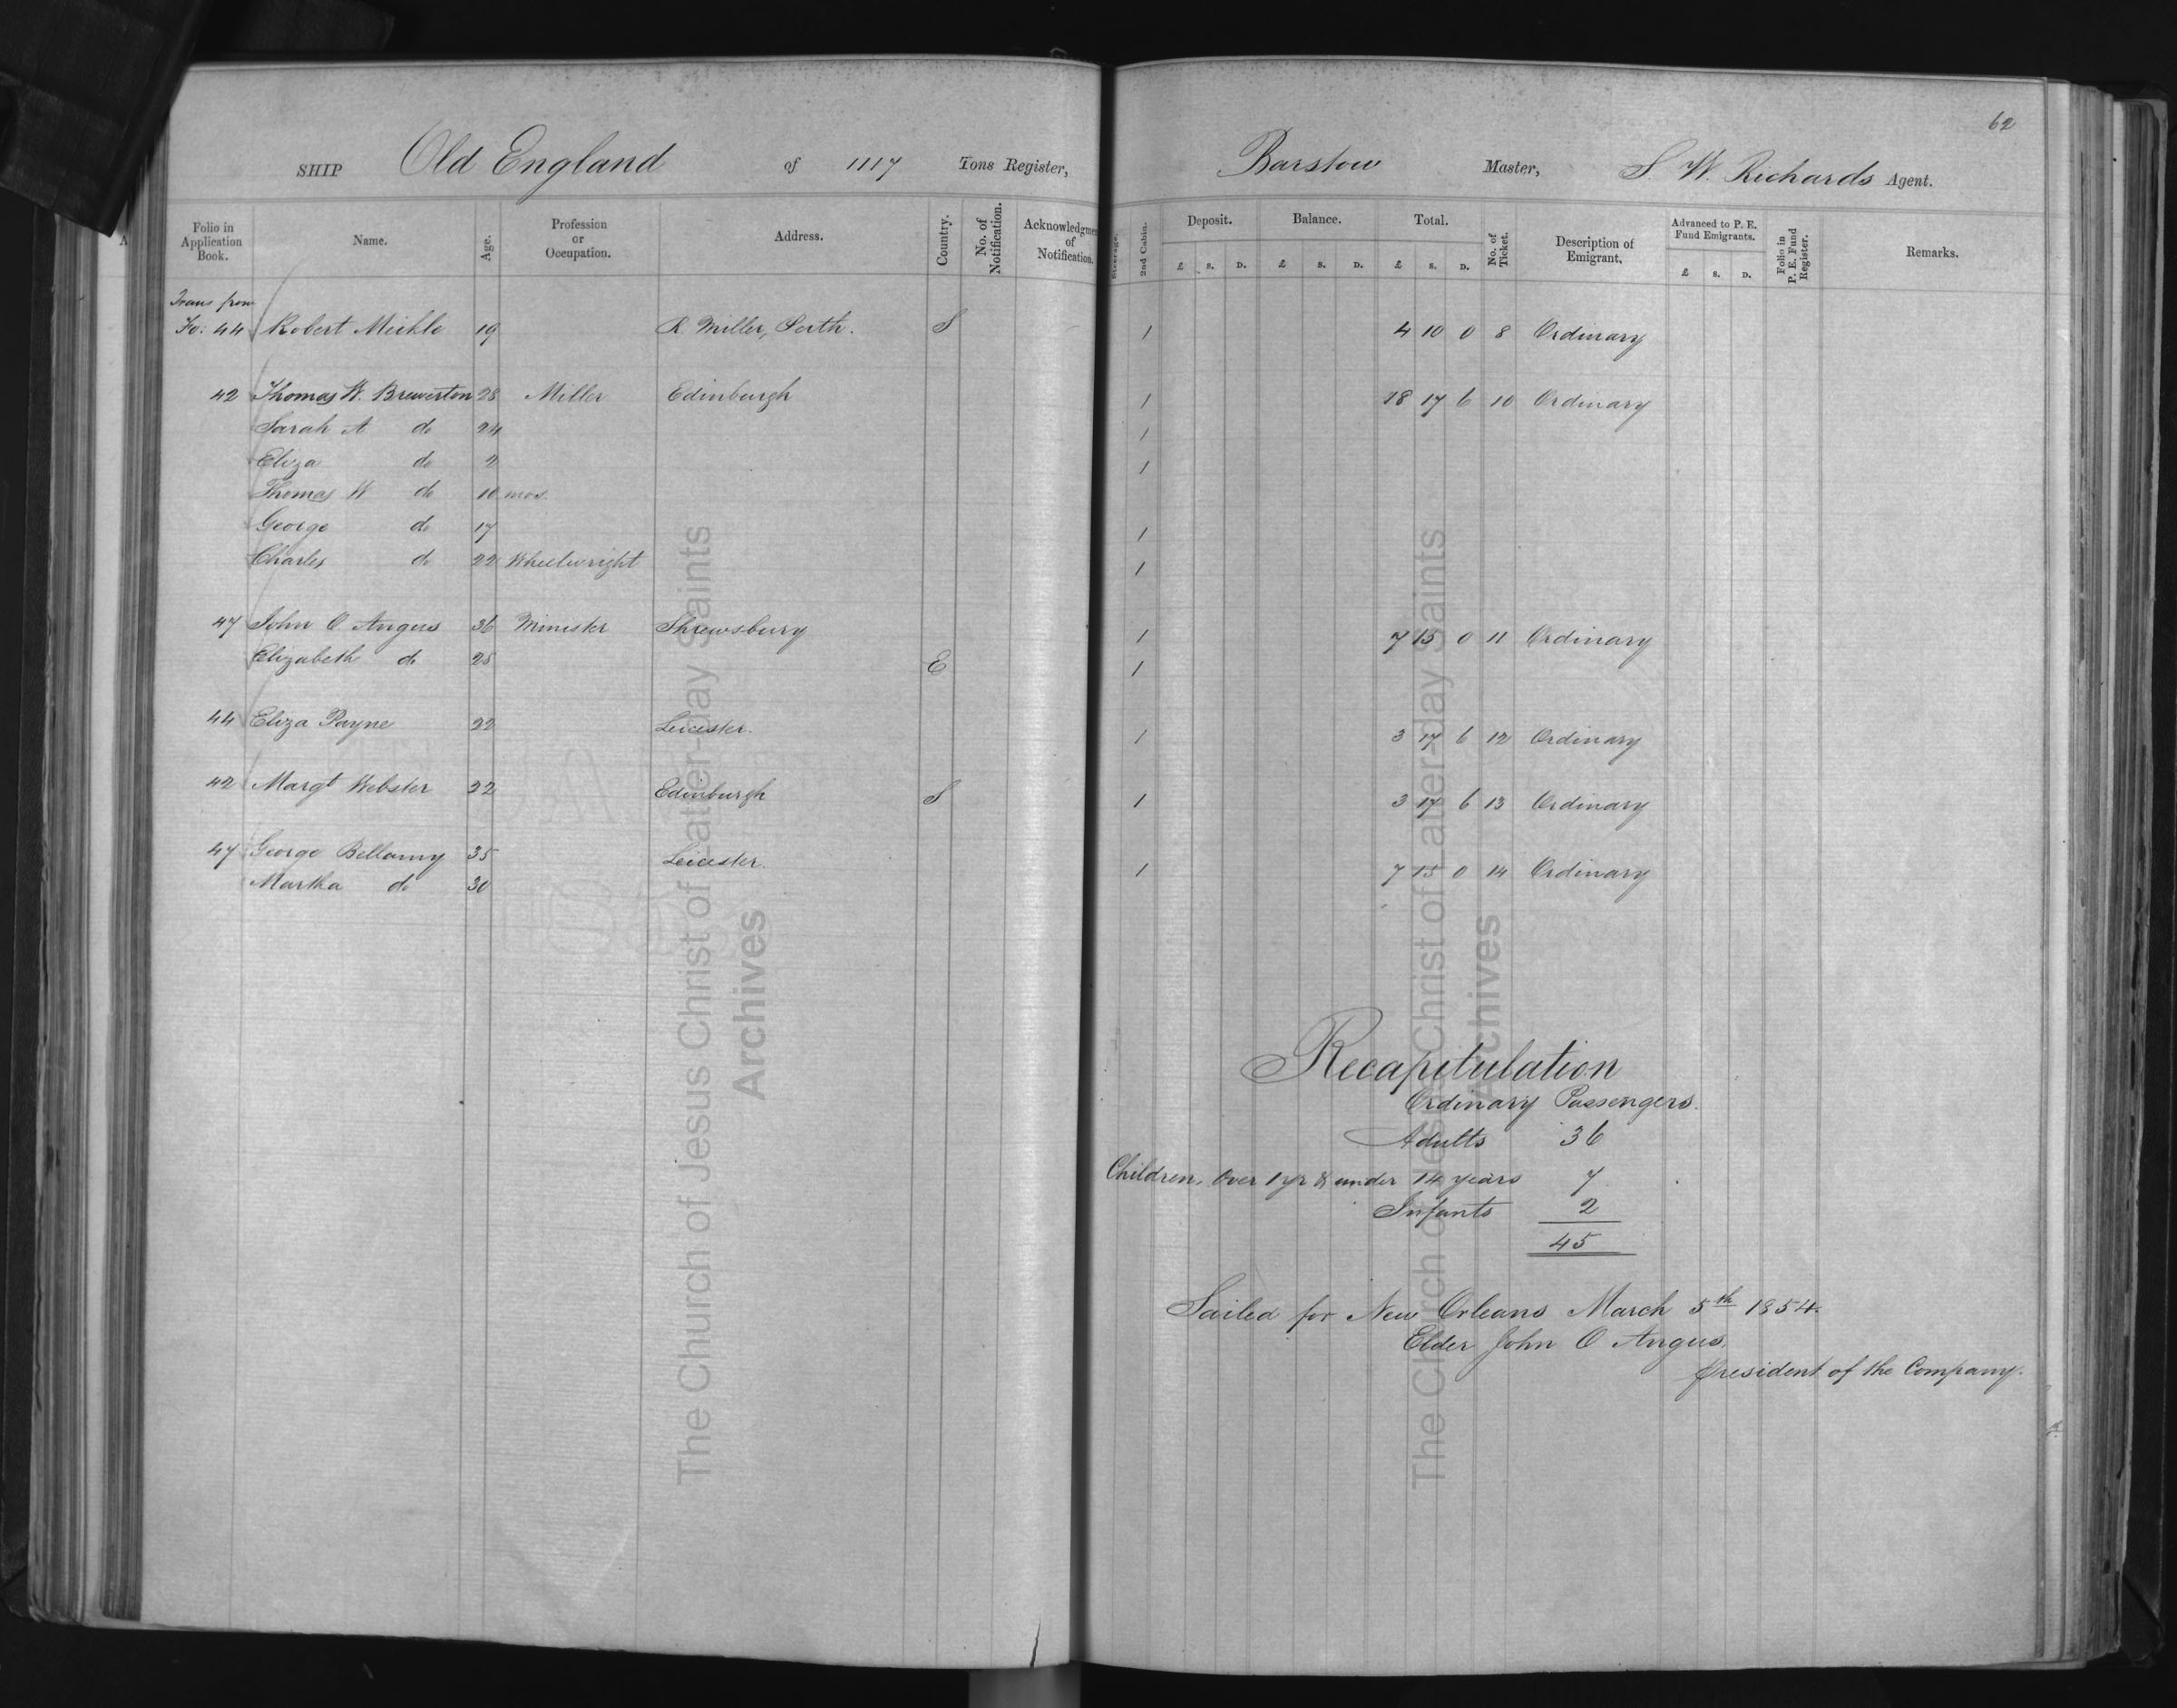 62
SHIP Old England of 1117 Tons Register, Barstow Master, S. W. Richards Agent.
Folio in Application Book. Name. Age. Profession or Occupation. Address. Country. No. of Notification. Acknowledgment of Notification. Steerage. 2nd Cabin. Deposit. £ S. D. Balance. £ S. D. Total. £ S. D. No. of Ticket. Description of Emigrant. Advanced to P. E. Fund Emigrants. £ S. D. Folio in P. E. Fund Register. Remarks.
Trans from
Fo: 44 Robert Meikle 19 R. Miller, Perth. S 1 4 10 0 8 Ordinary
42 Thomas W. Brewerton 28 Miller Edinburgh 1 18 17 6 10 Ordinary
Sarah A do 24 1
Eliza do 2 1
Thomas W do 10 mos.
George do 17 1
Charles do 22 Wheelwright 1
47 John O Angus 36 Minister Shrewsbury 1 7 15 0 11 Ordinary
Elizabeth do 25 E 1
44 Eliza Payne 22 Leicester. 1 3 17 6 12 Ordinary
42 Margt Webster 22 Edinburgh S 1 3 17 6 13 Ordinary
47 George Bellamy 35 Leicester. 1 7 15 0 14 Ordinary
Martha do 30
Recapitulation
Ordinary Passengers.
Adults 36
Children, Over 1 yr & under 14 years 7
Infants 2
45
Sailed for New Orleans March 5th 1854.
Elder John O Angus.
President of the Company.
The Church of Jesus Christ of Latter-day Saints
Archives
The Church of Jesus Christ of Latter-day Saints
Archives